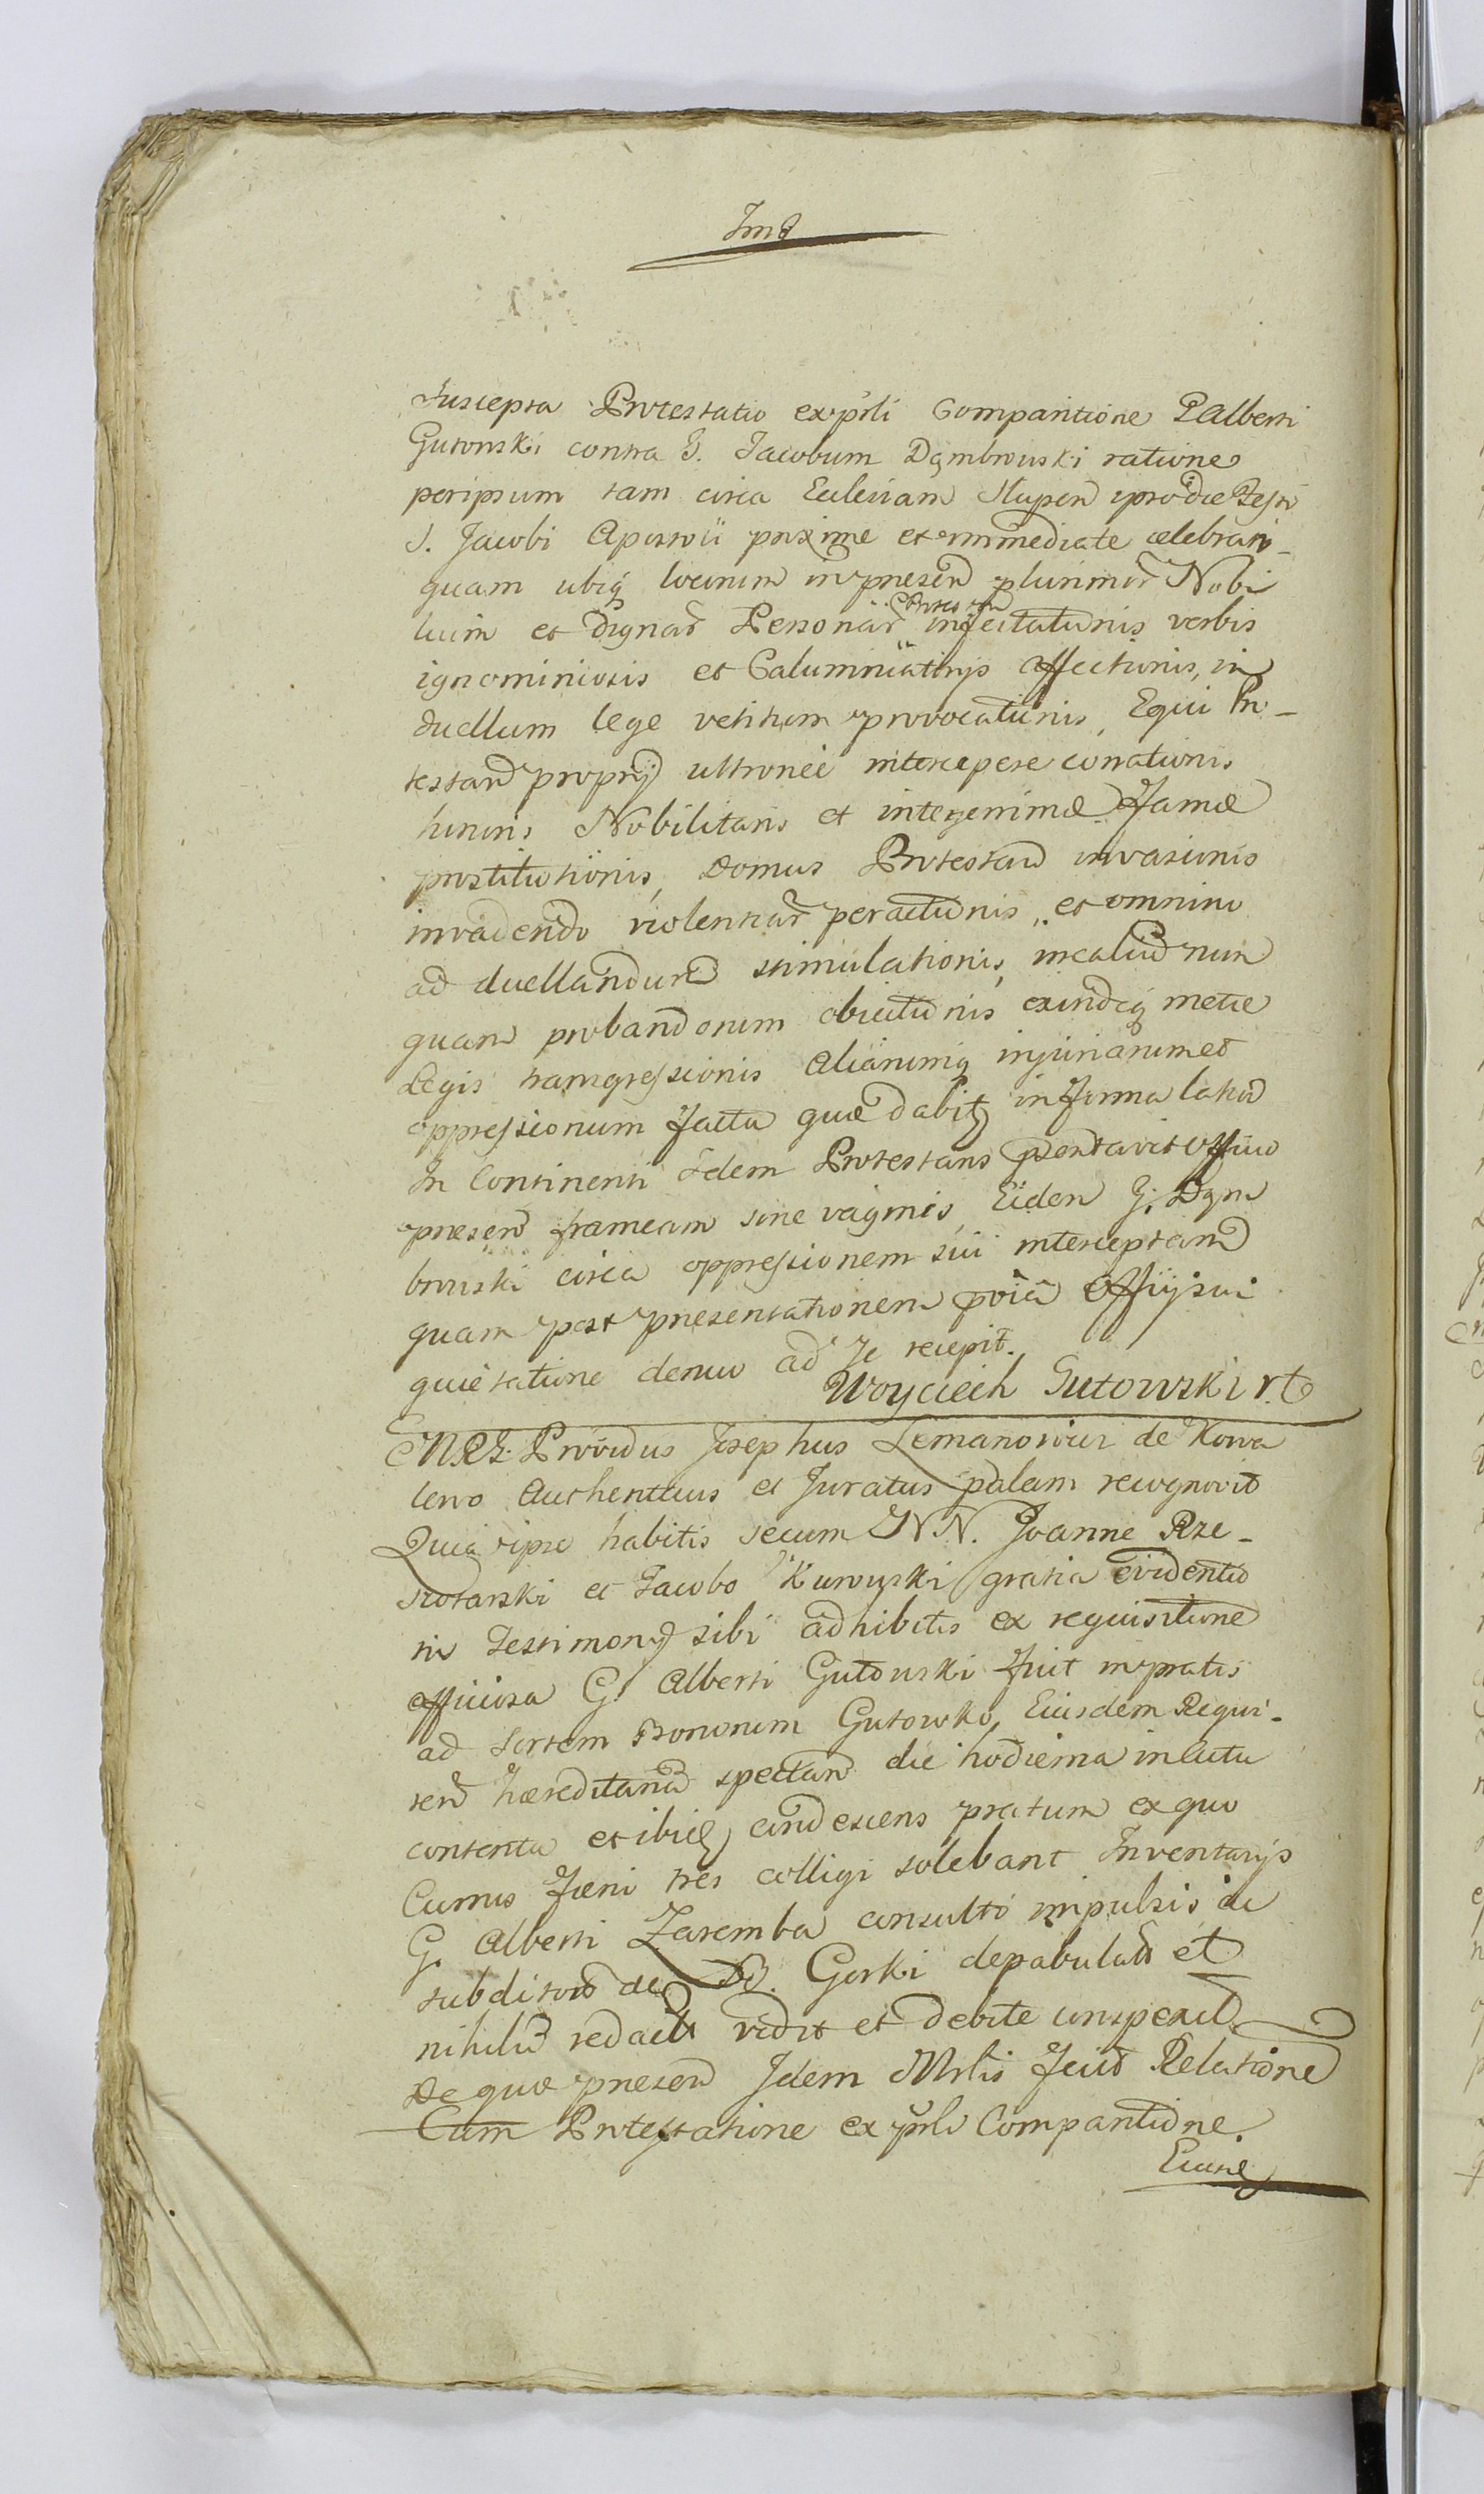 Suscepta Protestatio ex psli Comparitione G Alberti
Gutowski contra G. Jacobum Dąmbrowski ratione
per ipsum tam circa Ecclesiam Slupen pro die Festi
S. Jacobi Apostoli proxime et immediate celebrati
quam ubiq locorum in presen plurimor Nobi
lium et dignar Personar Protestan infectationis verbis
ignominiosis et Calumniatrijs affectionis, in
duellum lege vetitum provocationis, Equi Pro-
testan proprij ultronei intercepere conationis
honoris Nobilitatis et integerrimæ Famæ
prostitutionis, Domus Protestan invasionis
invadendo violentiar peractionis, et omnino
ad duellandum stimulationis, incalud nun
quam probandorum obiectionis exindeq metæ
Legis transgressionis Aliarumq injuriarum et
oppressionum facta quæ dabitq in forma latiõ
In Continenti Idem Protestans pentavit Officio
presen frameam sine vaginis, Eidem G. Dąm
browski circa oppressionem sui interceptam
quam post presentationem Officij sui
quietatione denuo ad se recepit.
Woyciech Gutowski
Providus Josephus Lemanowicz de Kowa
lewo Authenticus et Juratus palam recognovit
Quia ipse habitis secum NN. Joanne Rze-
szotarski et Jacobo Kurowski gratia evidentio
ris Testimonij sibi adhibitis ex requisitione
officiosa G. Alberti Gutowski fuit in pratis
ad Sortem Bonorum Gutowko, Eiusdem Requi-
ren hæreditariã spectan die hodierna in Actu
contenta et ibiq condescens pratum ex quo
Currus Fæni tres colligi solebant Inventarijs
G. Alberti Zaremba consulto impulsis ac
subditorũ de B. Gorki depabulatũ et
nihilũ redactũ vidit et debite conspexit
De quo presen Idem Mrlis fecit Relatione
Cum Protestatione ex psli Comparitione.
Eiusq